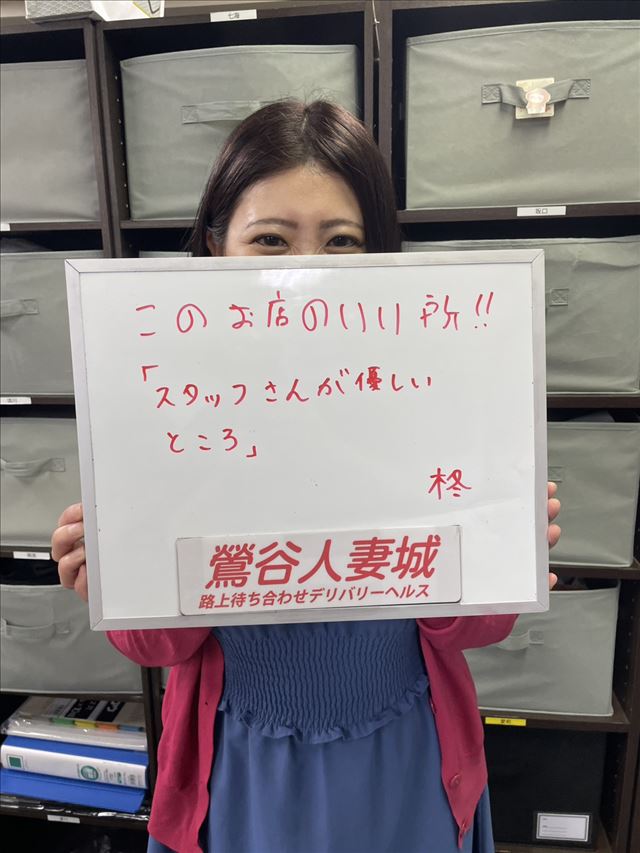 七海
坂口
このお店のいい所!!
「スタッフさんが優しい
ところ」
柊
鶯谷人妻城
路上待ち合わせデリバリーヘルス